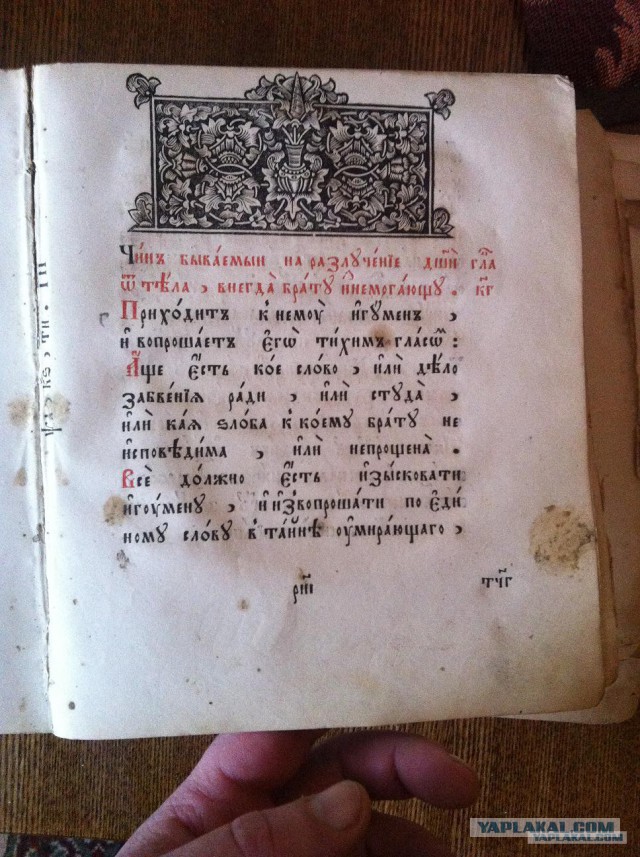 Чи́нъ быва́емыи на разлꙋче́нїе дш҃и гла̀
ѿ тѣ́ла , внегда̀ бра́тꙋ и҆знемога́ющꙋ . кг҃
Прихо́дитъ к немоу̀ и҆гꙋ́менъ ,
и҆ вопроша́етъ є҆гѡ̀ ти́химъ гла́сѡ :
А҆́ще є҆́сть ко́е сло́во , и҆лѝ дѣ́ло
забве́нїѧ ра́ди , и҆лѝ стꙋда̀ ,
и҆лѝ ка́ѧ ѕло́ба к ко́емꙋ бра́тꙋ не
и҆сповѣ́дима , и҆лѝ непроще́на .
Всѐ до́лжно є҆́сть и҆зы́сковати
и҆гоу́менꙋ , и҆ и҆звопроша́ти по є҆ди
номꙋ сло́вꙋ в та́йнѣ оу҆мира́ющаго ,
рн҃і
тч҃г
YAPLAKAL.COM
yaplakal.com